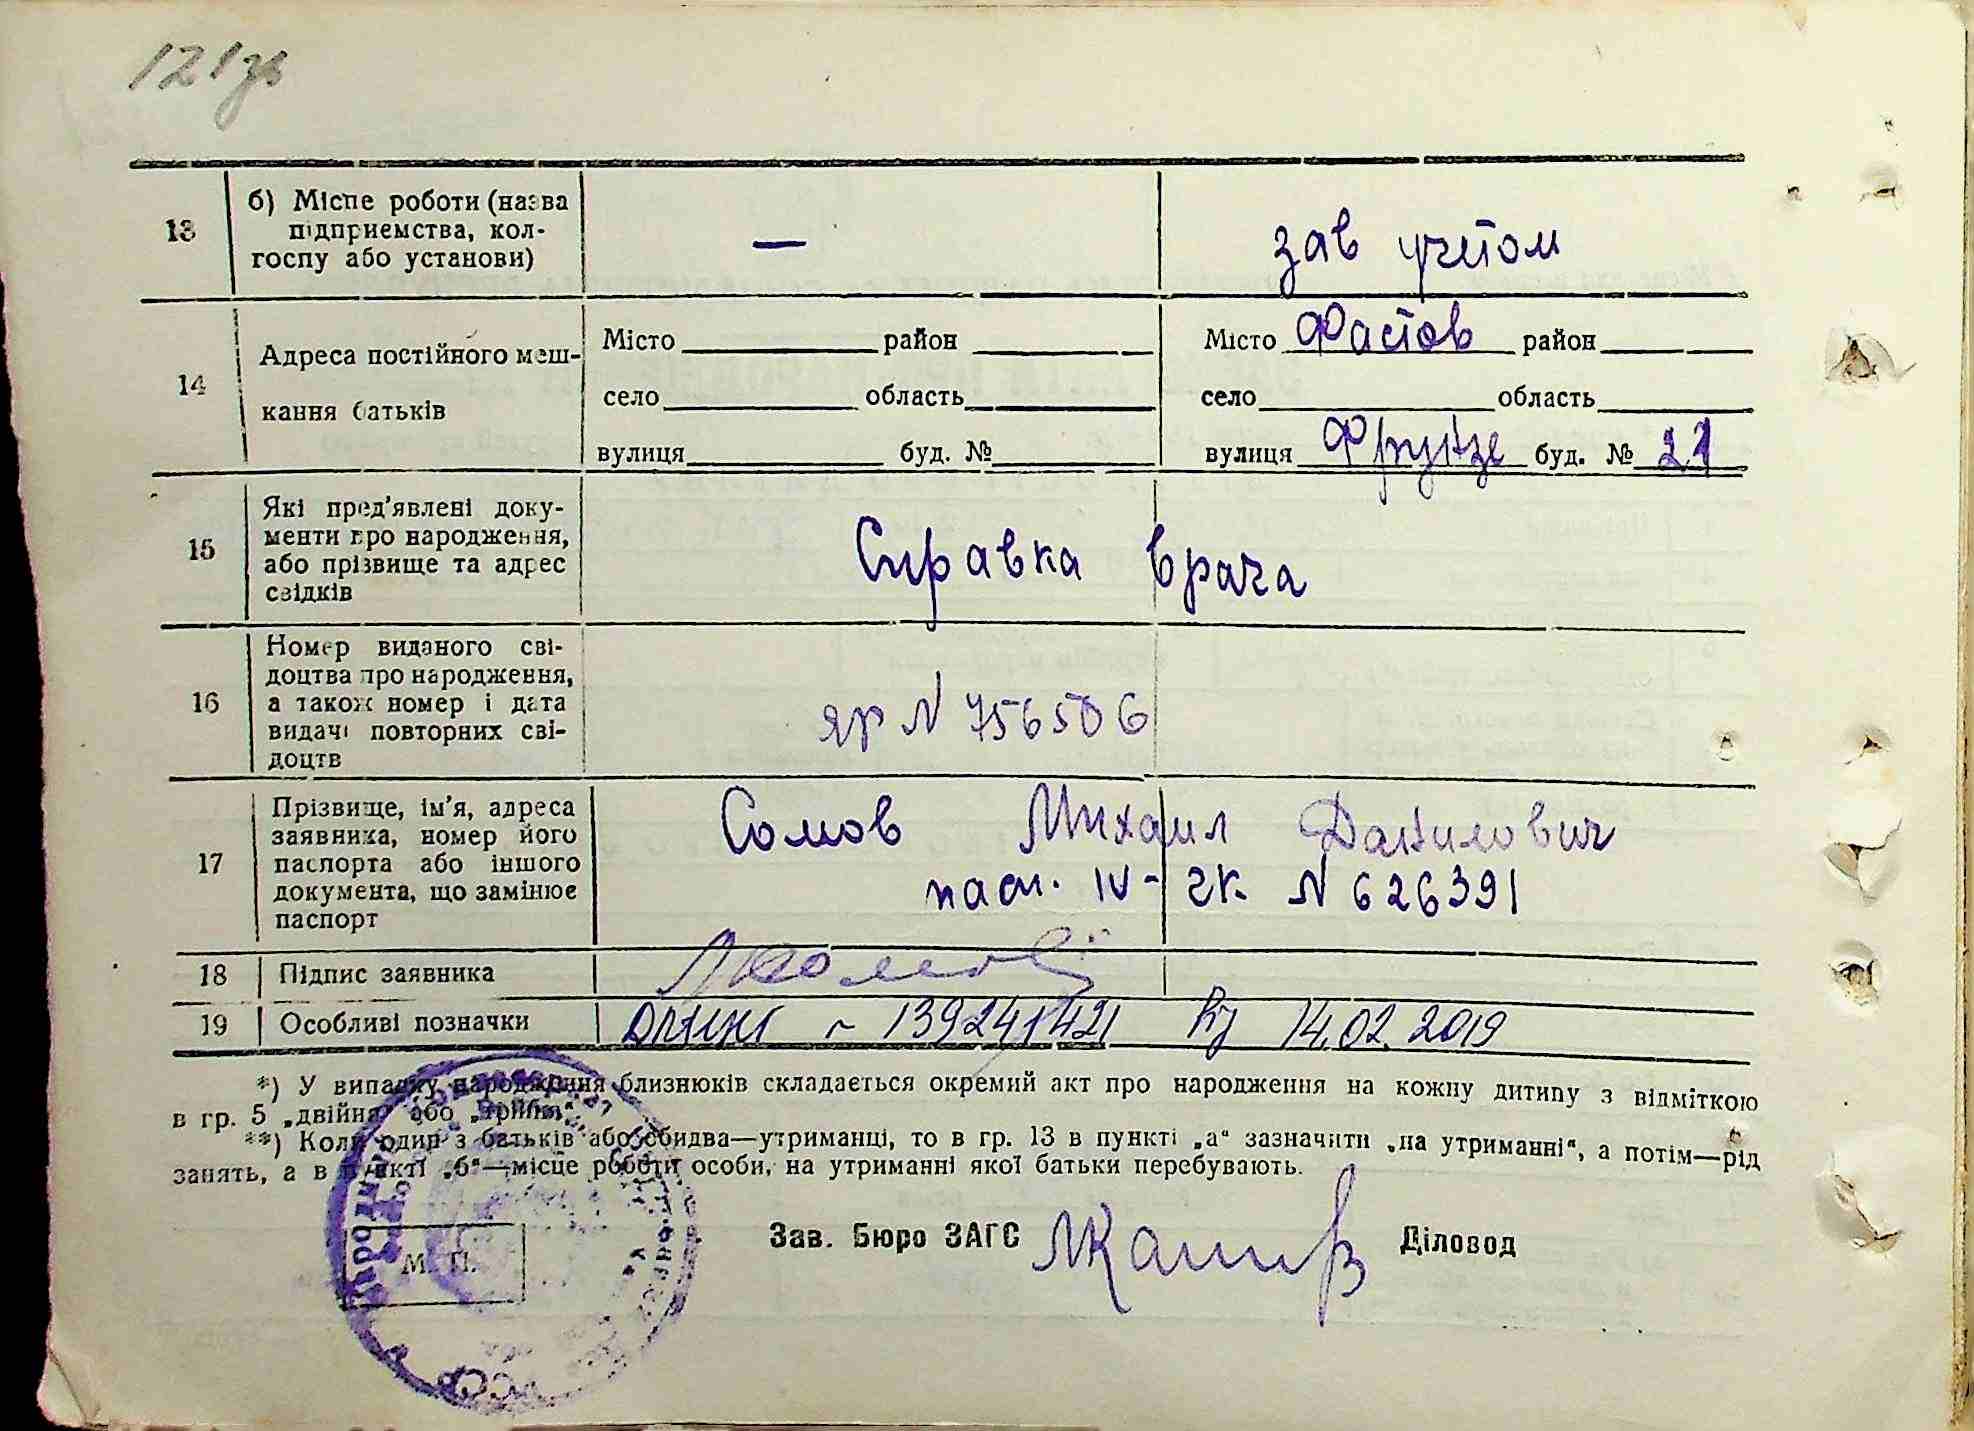 121зв
13 б) Місце роботи (назва підприємства, колгоспу або установи) — зав учетом
14 Адреса постійного мешкання батьків
Місто район Місто Фастов район
село область село область
вулиця буд. № вулиця Фрунзе буд. № 21
15 Які пред'явлені документи про народження, або прізвище та адрес свідків Справка врача
16 Номер виданого свідоцтва про народження, а також номер і дата видачі повторних свідоцтв ЯР N 756506
17 Прізвище, ім'я, адреса заявника, номер його паспорта або іншого документа, що замінює паспорт Сомов Михаил Данилович
пасп. IV-ЧК N 626391
18 Підпис заявника
19 Особливі позначки 14.02.2019
*) У випадку народження близнюків складається окремий акт про народження на кожну дитину з відміткою
в гр. 5 „двійна" або „трійня".
**) Коли один з батьків або обидва—утриманці, то в гр. 13 в пункті „а" зазначити „на утриманні", а потім—рід
занять, а в пункті „б"—місце роботи особи, на утриманні якої батьки перебувають.
Зав. Бюро ЗАГС Діловод
М. П.